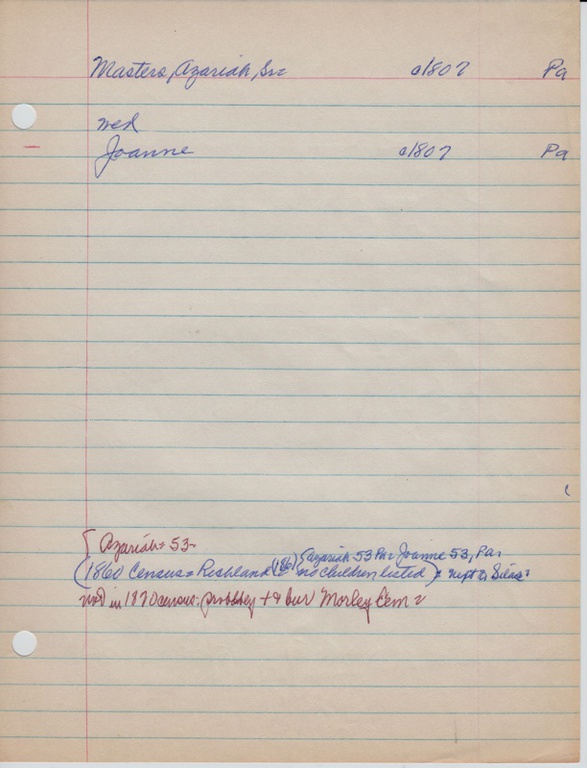 Masters, Azariah, Sr= c1807 Pa
wed
Joanne c1807 Pa
{ Azariah = 53 -
(1860 Census = Richland (186) { Azariah 53 Pa. Joanne 53, Pa.
no children listed) = next to Silas =
not in 1870 census. probbley + & bur Morley Cem =